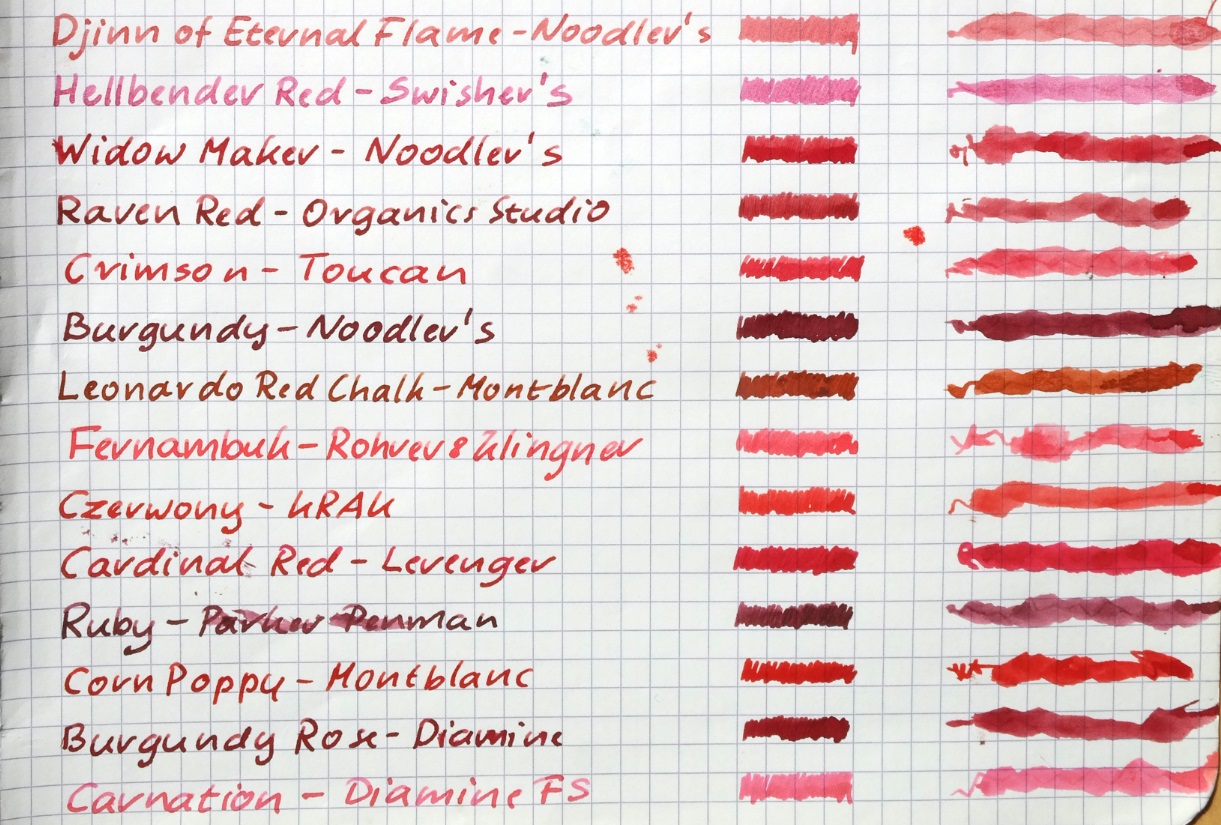 Djinn of Eternal Flame - Noodler's
Hellbender Red - Swisher's
Widow Maker - Noodler's
Raven Red - Organics Studio
Crimson - Toucan
Burgundy - Noodler's
Leonardo Red Chalk - Montblanc
Fernambuk - Rohrer & Klingner
Czerwony - KRAK
Cardinal Red - Levenger
Ruby - Parker Penman
Corn Poppy - Montblanc
Burgundy Rose - Diamine
Carnation - Diamine FS